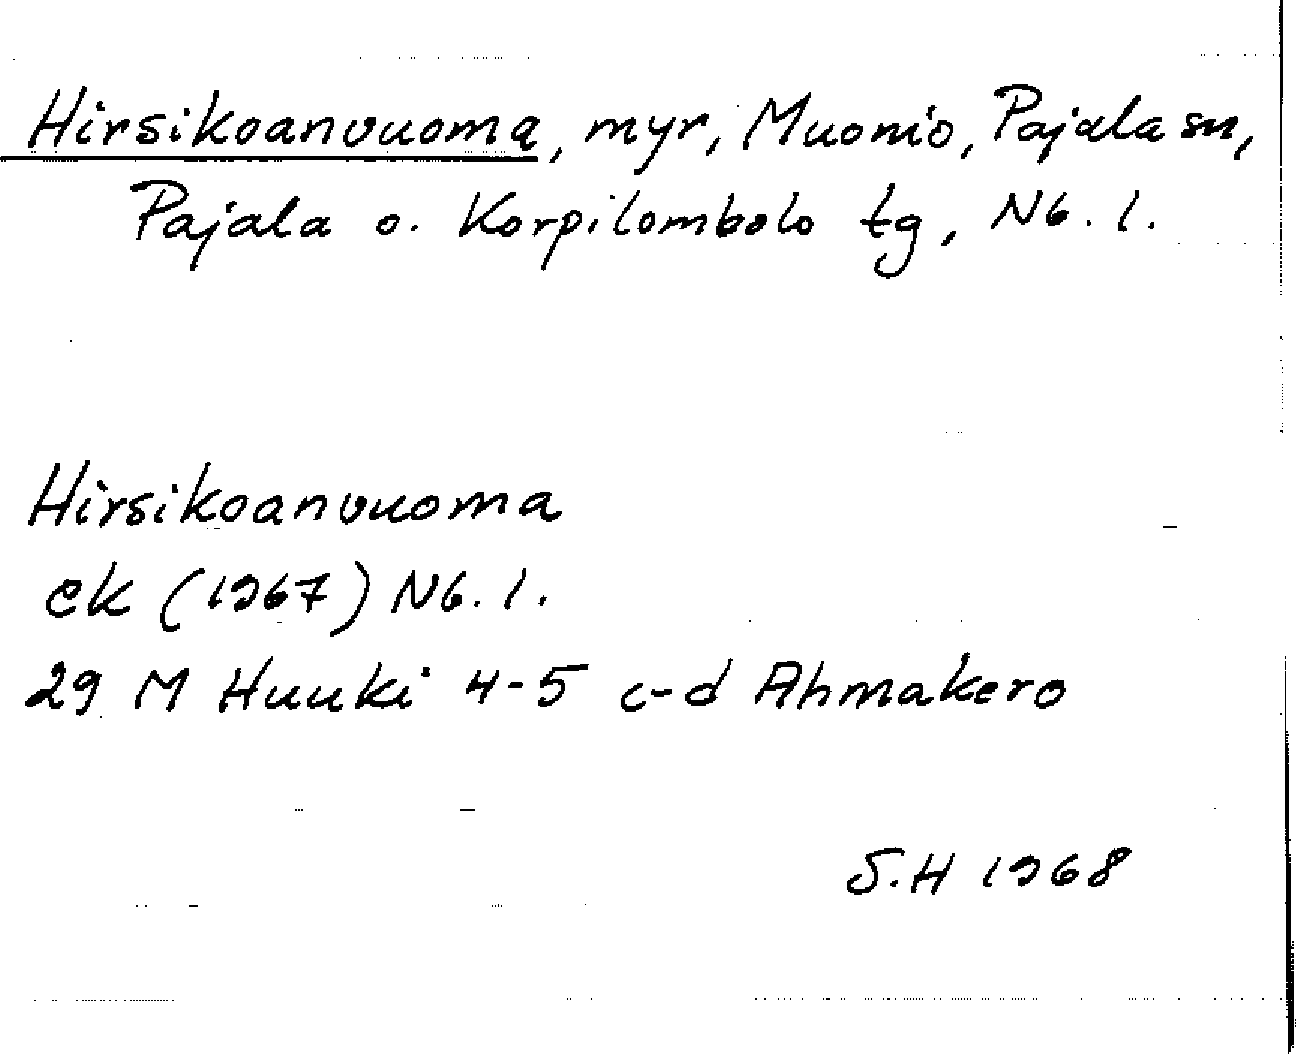 Hirsikoanvuoma, myr, Muonio, Pajala sn,
Pajala o. Korpilombolo tg, Nb. l.
Hirsikoanvuoma
ek (1967) Nb. l.
29 M Huuki 4-5 c-d Ahmakero
S.H 1968